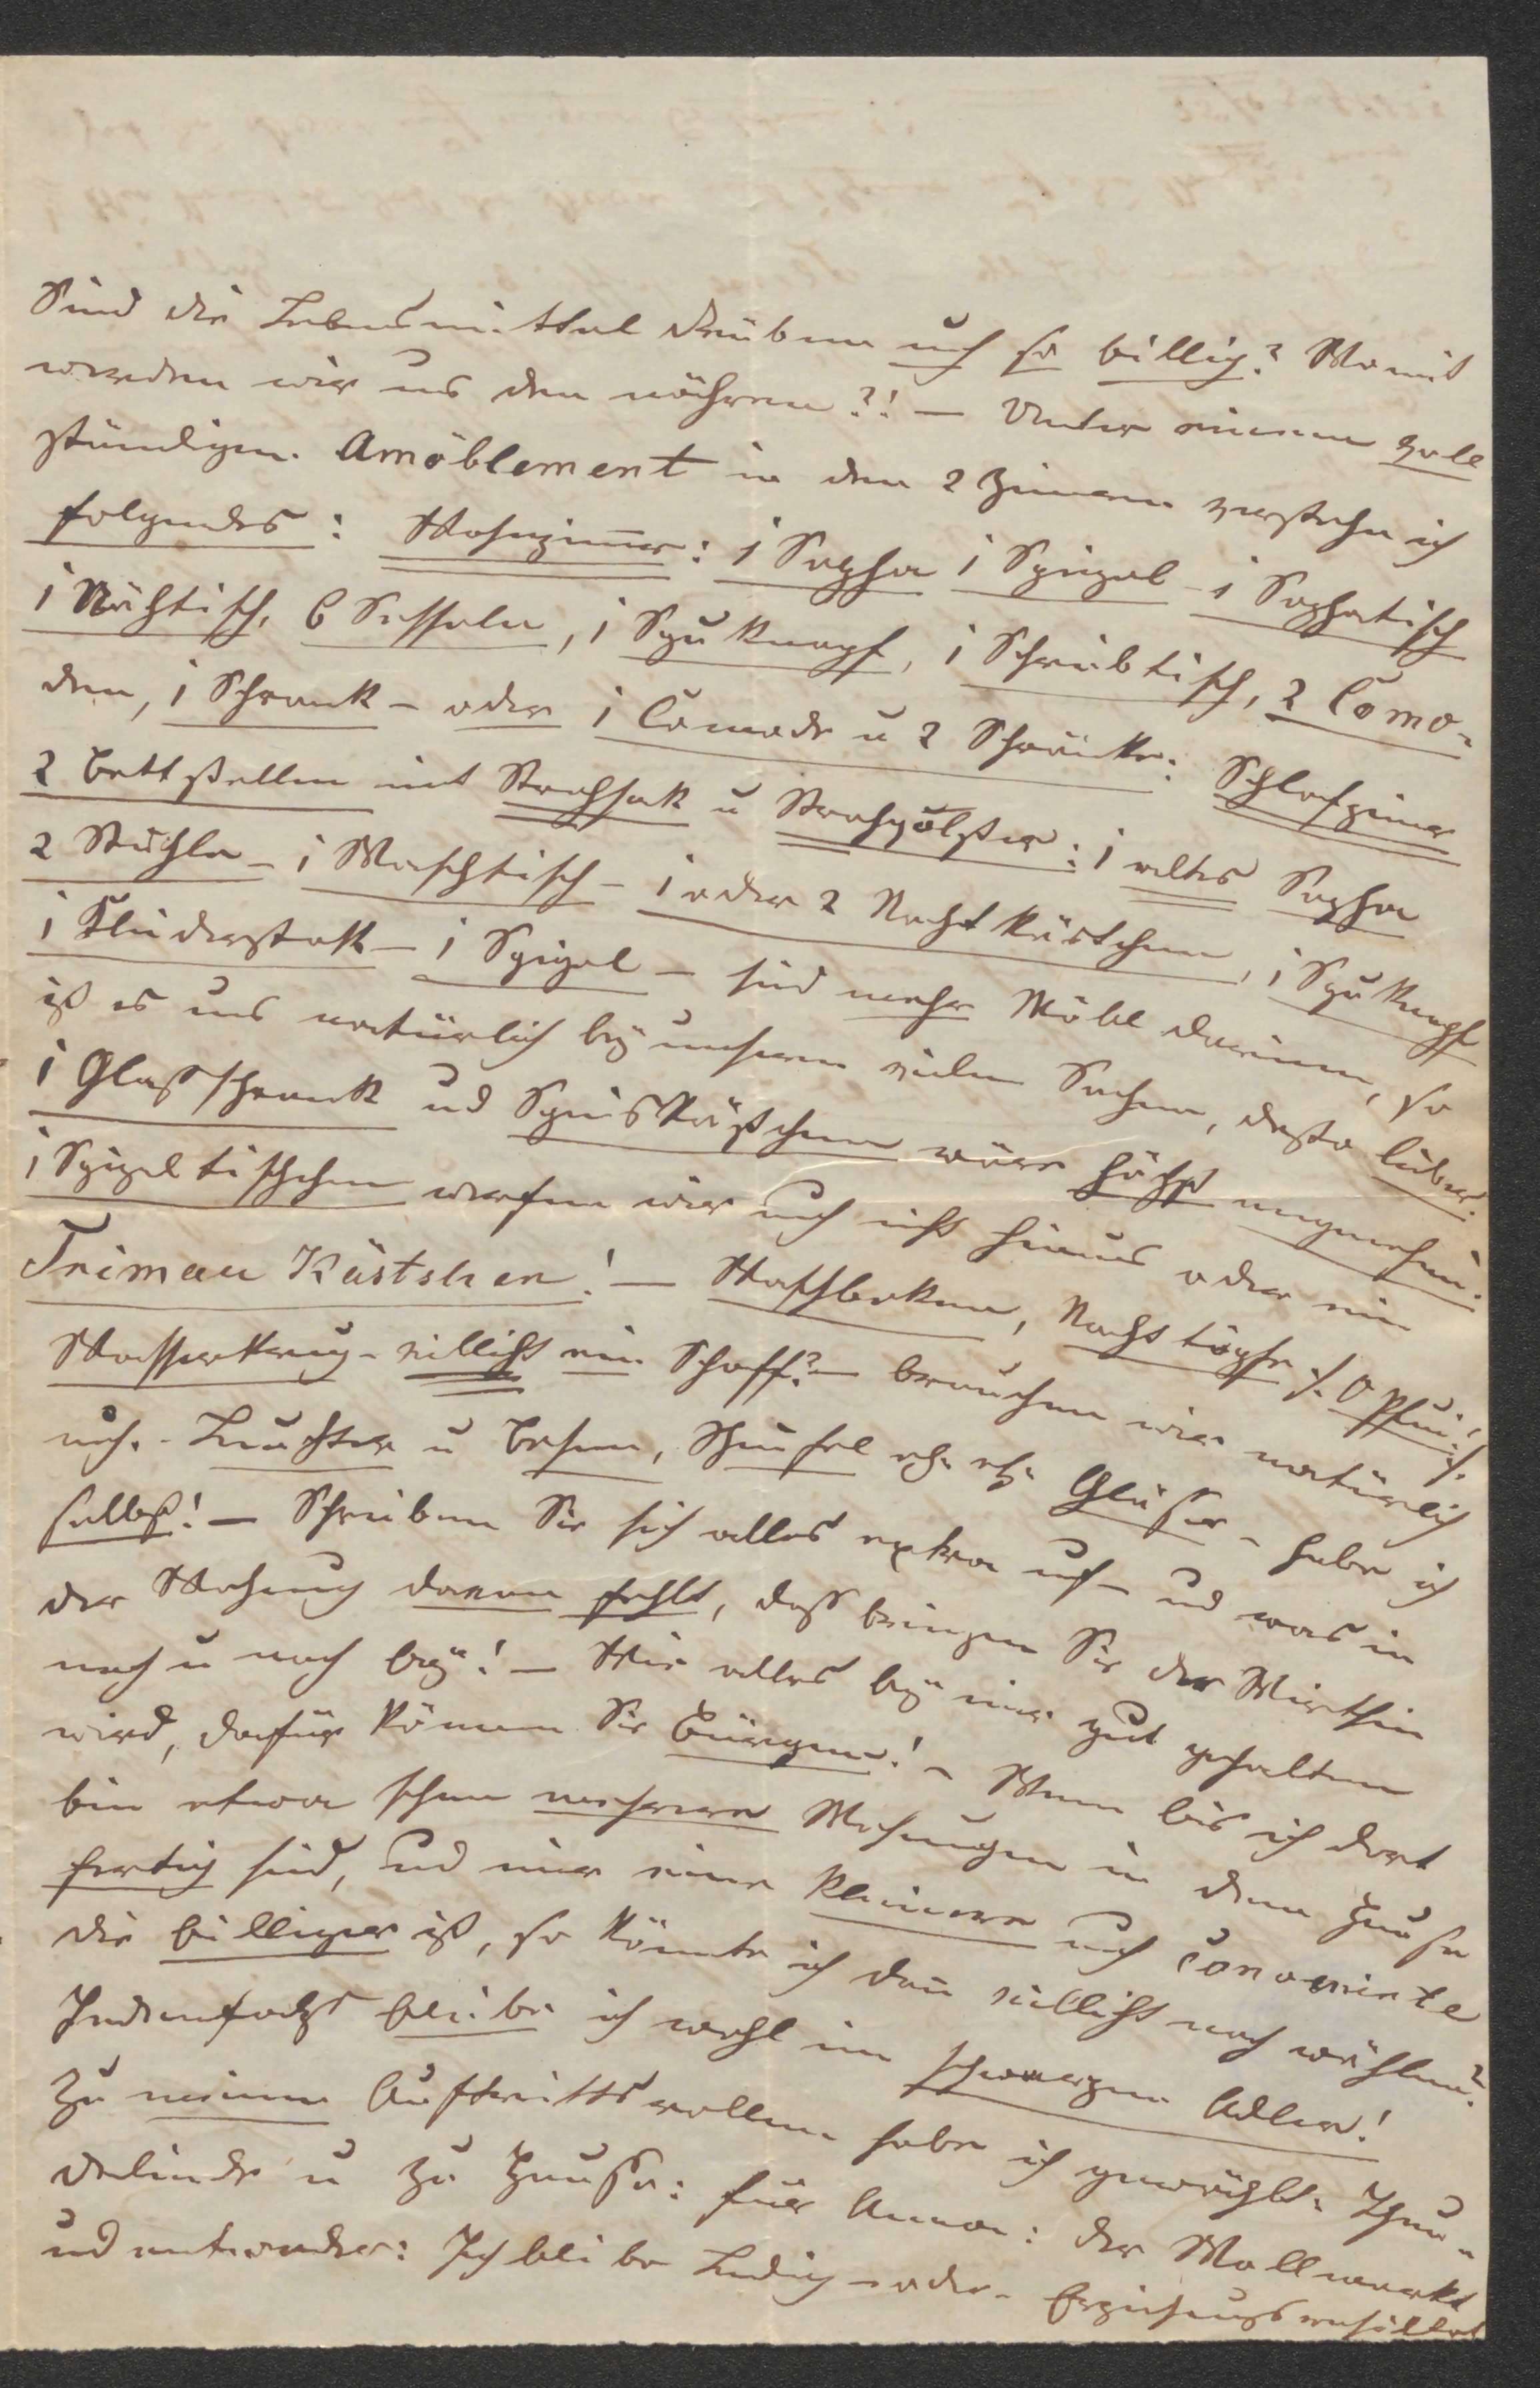 Sind die Lebensmittel drüben auch so billig? Womit
werden wir uns den nähren?! — Unter einem voll
ständigen Amöblement in den 2 Zimmern verstehe ich
folgendes: Wohnzimmer: 1 Sopha 1 Spigel - 1 Sophatisch
1 Nähtisch, 6 Sesseln, 1 Spuknapf, 1 Schreibtisch, 2 Como-
den, 1 Schrank - oder 1 Comode u 2 Schränke: Schlafzimer
2 Bettstellen mit Strohsak u Strohpölster: 1 altes Sopha
2 Stühle - 1 Waschtisch - 1 oder 2 Nachtkästchen, 1 Spuknapf
1 Kleiderstok - 1 Spigel - sind mehr Möbl darinn, so
ist es uns natürlich bey unseren vielen Sachen, desto lieber.
1 Glasschrank und Speiskästchen wäre höchst angenehm.
1 Spigeltischchen werfen wir auch nicht hinaus oder ein
Trimau Kästchen! — Waschbeken, Nachttöpfe /: O Pfui! :/
Wasserkrug - vielleicht ein Schaff? - brauchen wir natürlich
auch. - Leuchter u Besen, Schaufel etc etc Gläser - habe ich
selbst! — Schreiben Sie sich alles extra auf - und was in
der Wohnung davon fehlt, daß bringen Sie der Wirthin
nach u nach bey! — Wie alles bey mir gut gehalten
wird, dafür könnnen Sie bürgen! - Wenn bis ich dort
bin etwa schon mehrere Wohnungen in dem Hause
fertig sind, und mir eine kleinere auch convenirte
die billiger ist, so könnte ich dann vielleicht noch wählen?
Jedenfalls bleibe ich wohl im schwarzen Adler!
Zu meinen Auftrittsrollen habe ich gewählt: Thus-
nelde u zu Hause: für Anna: der Wollmarkt
und entweder: Ich bleibe Ledig - oder - Erziehungsresultat